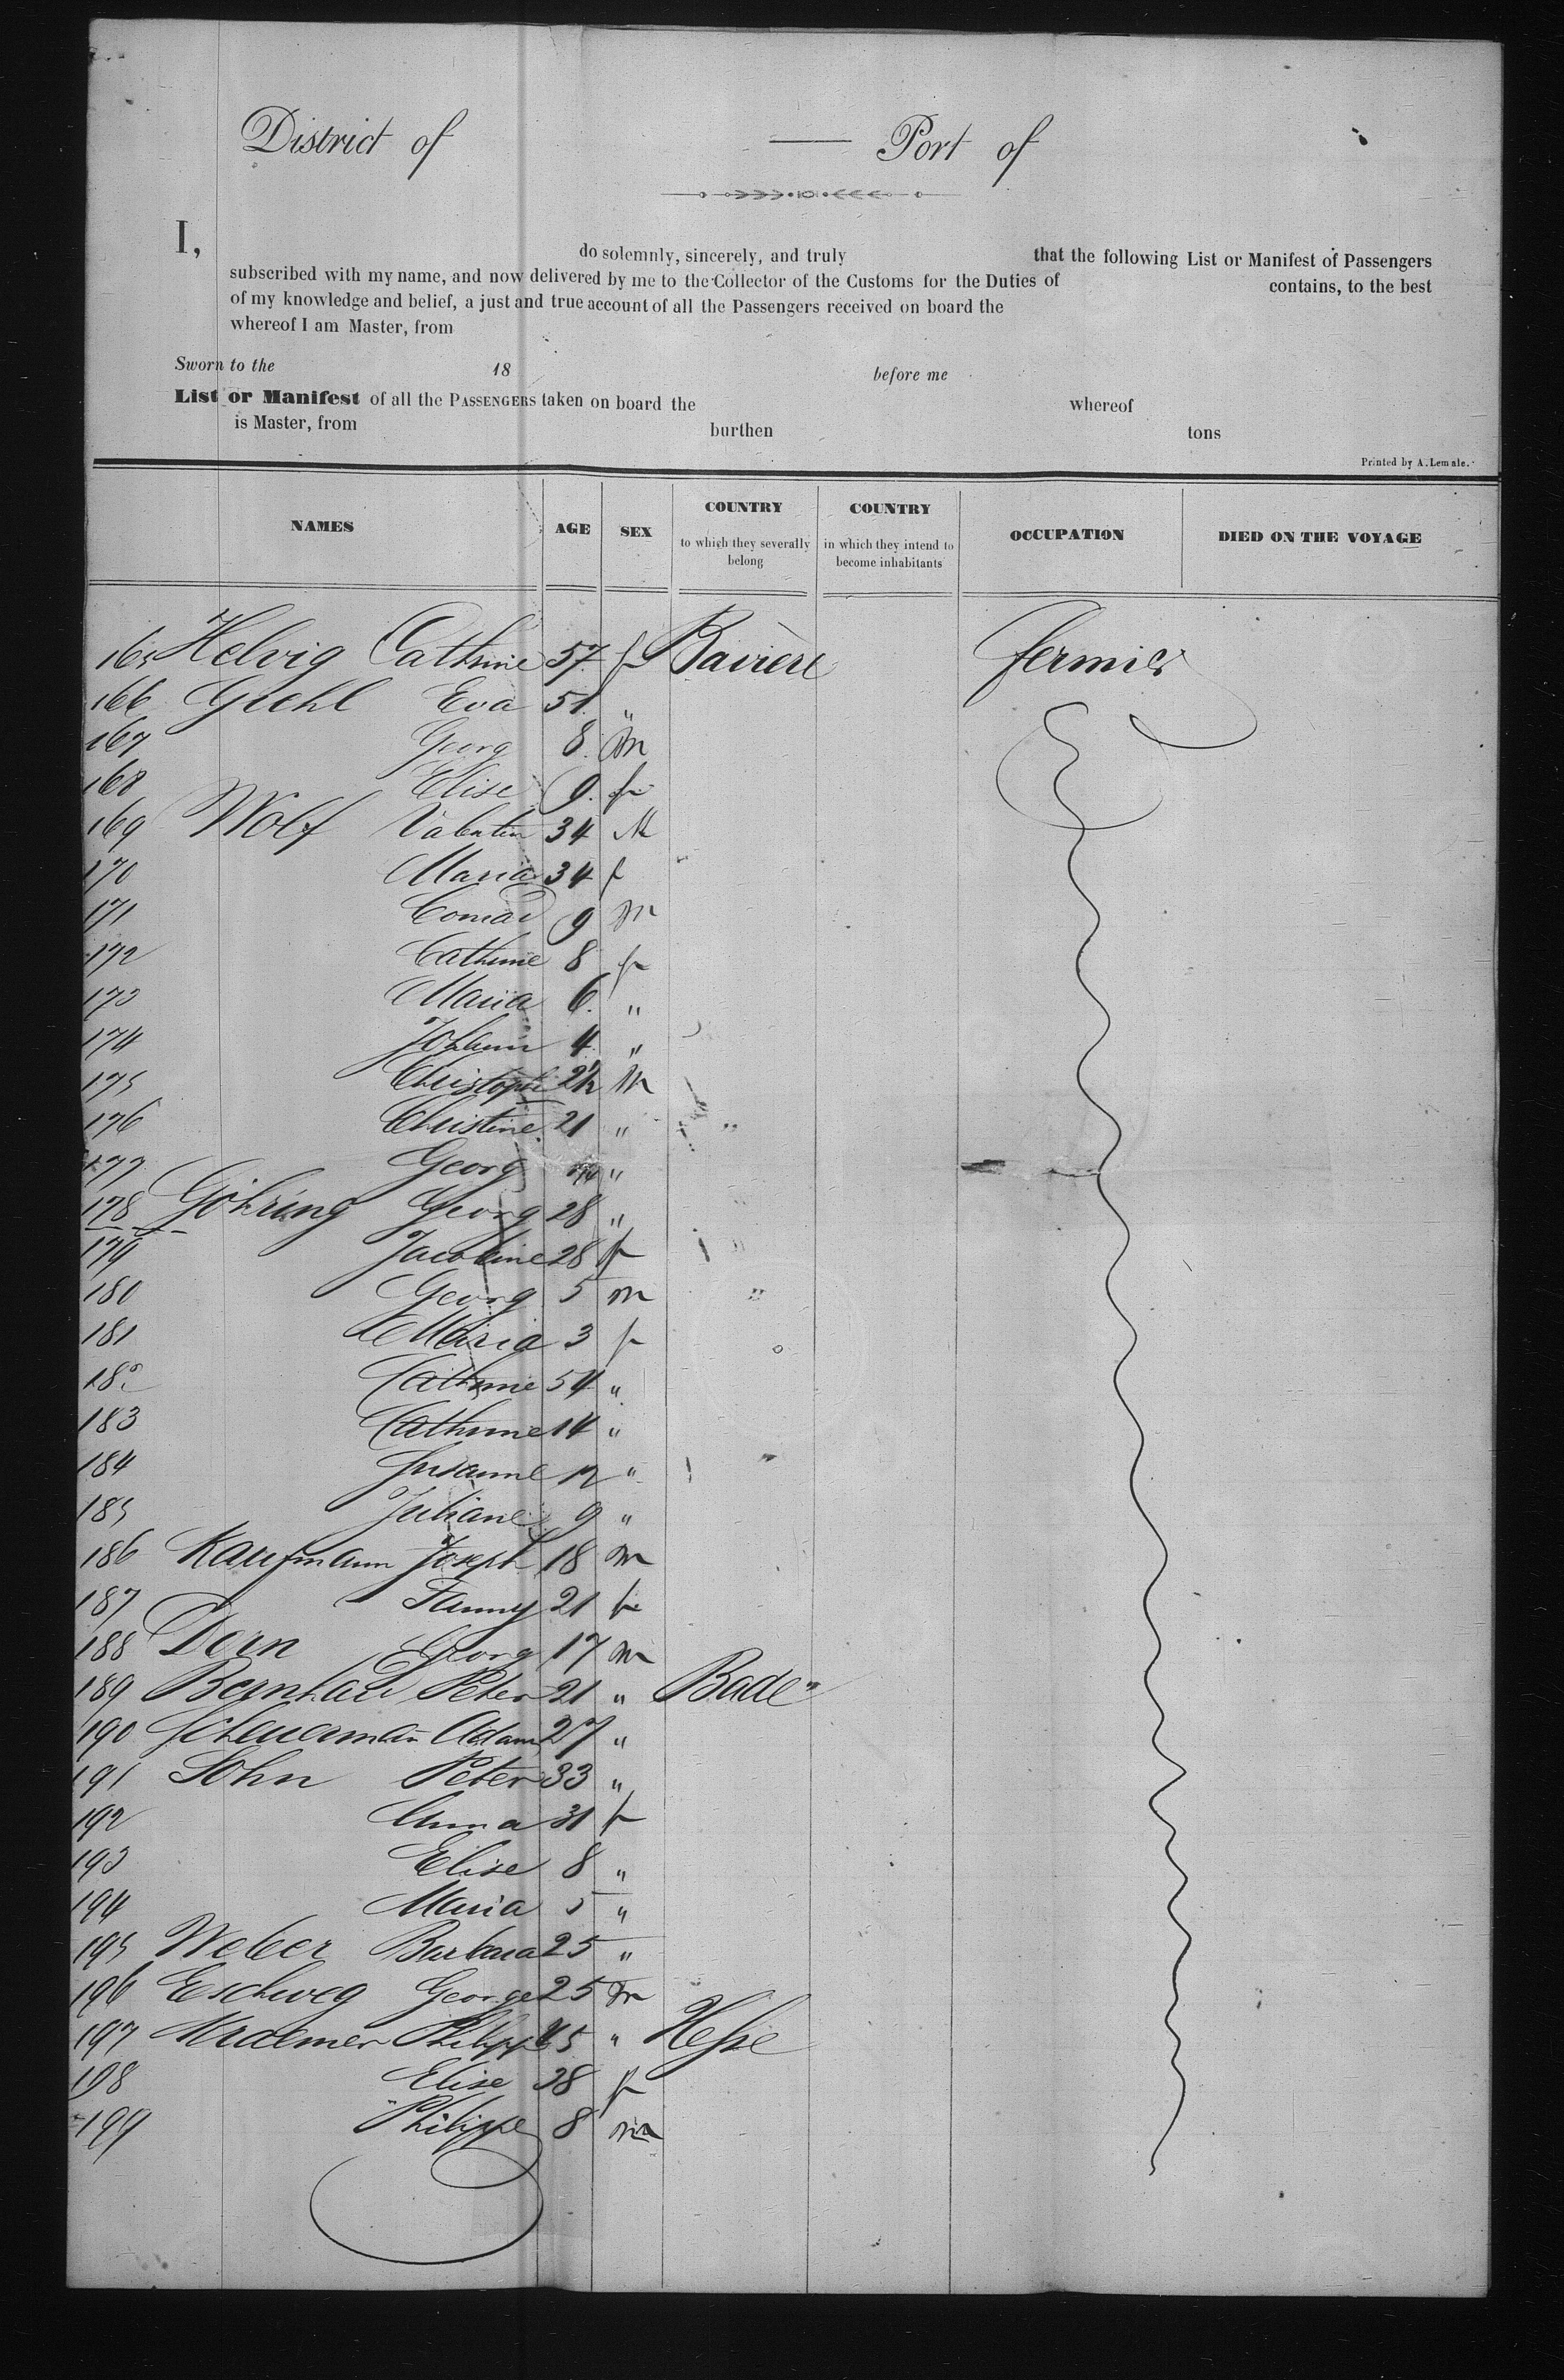 District of — Port of
I, do solemnly, sincerely, and truly that the following List or Manifest of Passengers
subscribed with my name, and now delivered by me to the Collector of the Customs for the Duties of contains, to the best
of my knowledge and belief, a just and true account of all the Passengers received on board the
whereof I am Master, from
Sworn to the 18 before me
List or Manifest of all the PASSENGERS taken on board the whereof
is Master, from burthen tons
Printed by A. Lemale.
NAMES AGE SEX COUNTRY to which they severally belong COUNTRY in which they intend to become inhabitants OCCUPATION DIED ON THE VOYAGE
165 Helvig Cathrine 57 f Bavière fermier
166 Giehl Eva 51 "
167 Georg 8 m
168 Elise 9 f
169 Wolf Valentin 34 M
170 Maria 34 f
171 Conrad 9 m
172 Cathrine 8 f
173 Maria 6 "
174 Johann 4 "
175 Christoph 2½ M
176 Christine 21 " "
177 Georg "
178 Göhring Georg 28 "
179 Jacobine 28 f "
180 Georg 5 m "
181 Maria 3 f
182 Cathrine 54 "
183 Cathrine 14 "
184 Susanne 12 "
185 Juliane 9 "
186 Kaufmann Joseph 18 m
187 Fanny 21 f
188 Dorn Georg 17 m
189 Bernhard Peter 21 " Bade
190 Scheuermañ Adam 27 "
191 Sohn Peter 33 "
192 Anna 31 f
193 Elise 8 "
194 Maria 5 "
195 Weber Barbara 25 "
196 Eschweg George 25 m
197 Kraemer Philippe 45 " Hesse
198 Elise 38 f
199 Philippe 8 m